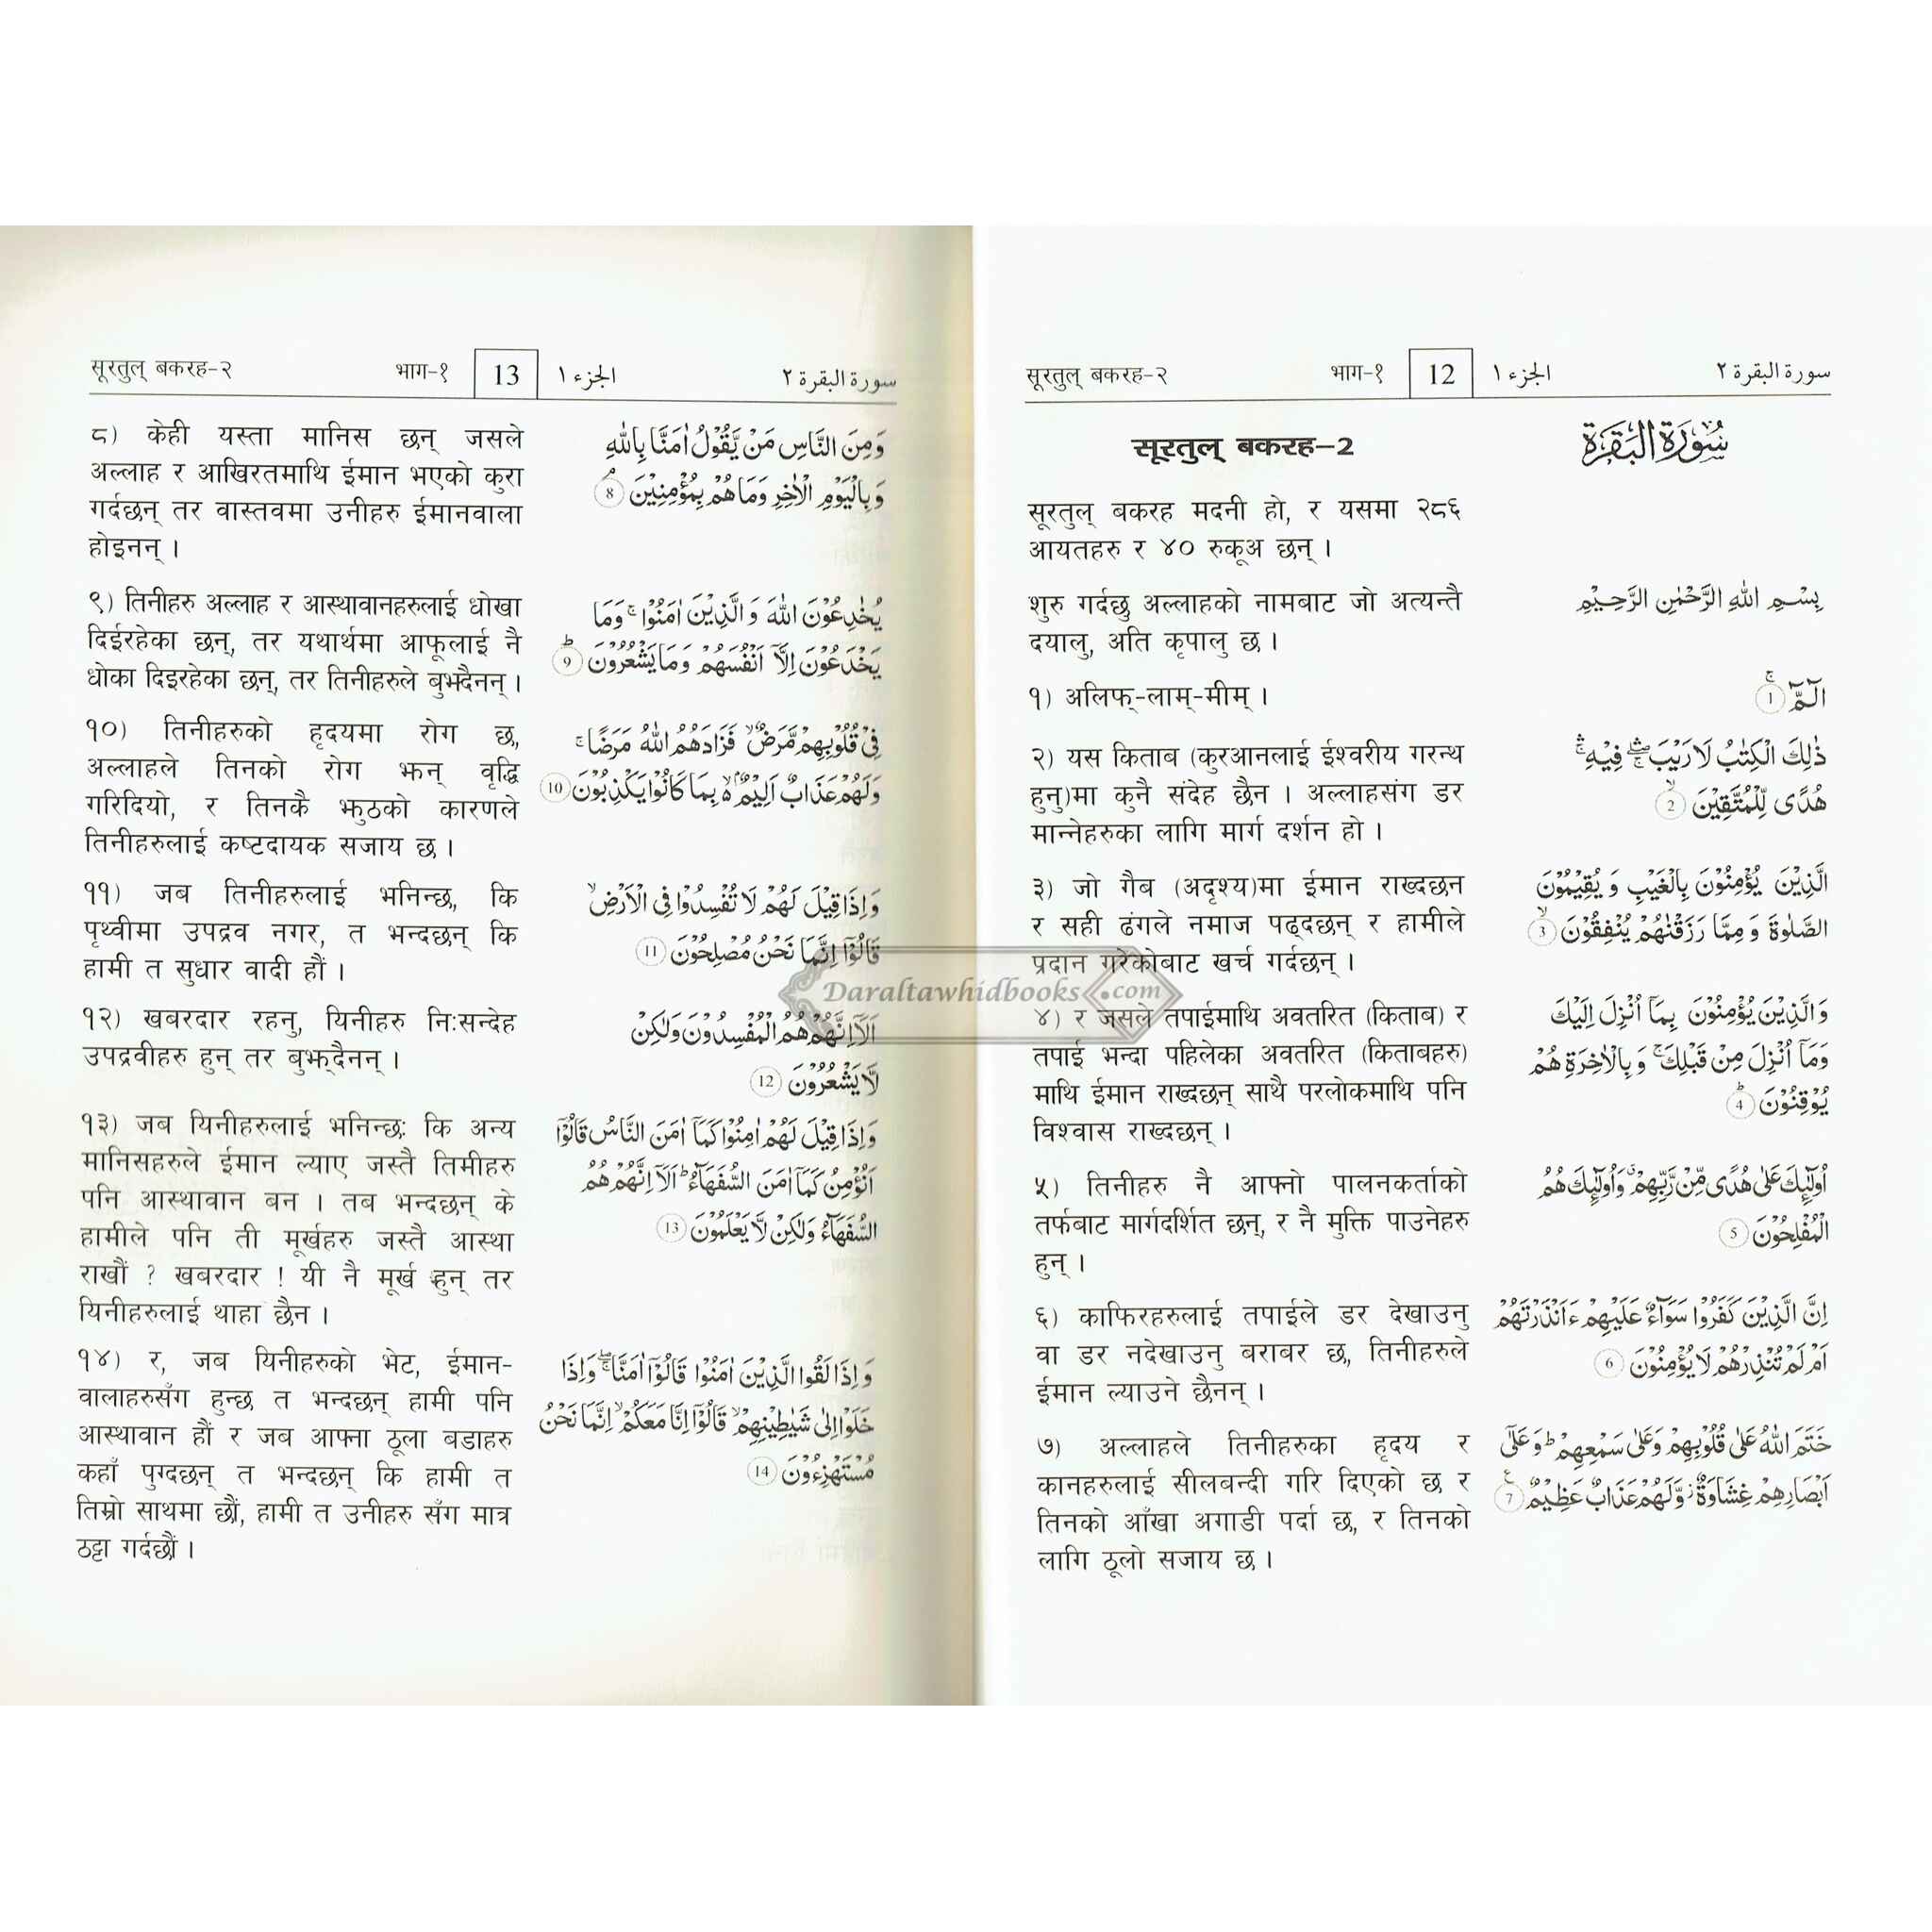 सूरतुल् बकरह-२ भाग-१ 12 الجزء ١ سورة البقرة ٢
सूरतुल् बकरह-2
सूरतुल् बकरह मदनी हो, र यसमा २८६
आयतहरु र ४० रुकूअ छन् ।
शुरु गर्दछु अल्लाहको नामबाट जो अत्यन्तै
दयालु, अति कृपालु छ ।
१) अलिफ्-लाम्-मीम् ।
२) यस किताब (कुरआनलाई ईश्वरीय गरन्थ
हुनु)मा कुनै संदेह छैन । अल्लाहसंग डर
मान्नेहरुका लागि मार्ग दर्शन हो ।
३) जो गैब (अदृश्य)मा ईमान राख्दछन
र सही ढंगले नमाज पढ्दछन् र हामीले
प्रदान गरेकोबाट खर्च गर्दछन् ।
४) र जसले तपाईमाथि अवतरित (किताब) र
तपाई भन्दा पहिलेका अवतरित (किताबहरु)
माथि ईमान राख्दछन् साथै परलोकमाथि पनि
विश्वास राख्दछन् ।
५) तिनीहरु नै आफ्नो पालनकर्ताको
तर्फबाट मार्गदर्शित छन्, र नै मुक्ति पाउनेहरु
हुन् ।
६) काफिरहरुलाई तपाईले डर देखाउनु
वा डर नदेखाउनु बराबर छ, तिनीहरुले
ईमान ल्याउने छैनन् ।
७) अल्लाहले तिनीहरुका हृदय र
कानहरुलाई सीलबन्दी गरि दिएको छ र
तिनको आँखा अगाडी पर्दा छ, र तिनको
लागि ठूलो सजाय छ ।
سُورَةُ الْبَقَرَة
بِسْمِ اللهِ الرَّحْمٰنِ الرَّحِيْمِ
الٓمّٓ ۚ 1
ذٰلِكَ الْكِتٰبُ لَا رَيْبَ ۛۖ فِيْهِ ۛۚ
هُدًى لِّلْمُتَّقِيْنَ ۙ 2
الَّذِيْنَ يُؤْمِنُوْنَ بِالْغَيْبِ وَيُقِيْمُوْنَ
الصَّلٰوةَ وَمِمَّا رَزَقْنٰهُمْ يُنْفِقُوْنَ ۙ 3
وَالَّذِيْنَ يُؤْمِنُوْنَ بِمَآ اُنْزِلَ اِلَيْكَ
وَمَآ اُنْزِلَ مِنْ قَبْلِكَ ۚ وَبِالْاٰخِرَةِ هُمْ
يُوْقِنُوْنَ ؕ 4
اُولٰٓئِكَ عَلٰى هُدًى مِّنْ رَّبِّهِمْ ۙ وَاُولٰٓئِكَ هُمُ
الْمُفْلِحُوْنَ 5
اِنَّ الَّذِيْنَ كَفَرُوْا سَوَآءٌ عَلَيْهِمْ ءَاَنْذَرْتَهُمْ
اَمْ لَمْ تُنْذِرْهُمْ لَا يُؤْمِنُوْنَ 6
خَتَمَ اللهُ عَلٰى قُلُوْبِهِمْ وَعَلٰى سَمْعِهِمْ ؕ وَعَلٰٓى
اَبْصَارِهِمْ غِشَاوَةٌ ؗ وَّلَهُمْ عَذَابٌ عَظِيْمٌ 7
सूरतुल् बकरह-२ भाग-१ 13 الجزء ١ سورة البقرة ٢
८) केही यस्ता मानिस छन् जसले
अल्लाह र आखिरतमाथि ईमान भएको कुरा
गर्दछन् तर वास्तवमा उनीहरु ईमानवाला
होइनन् ।
९) तिनीहरु अल्लाह र आस्थावानहरुलाई धोखा
दिईरहेका छन्, तर यथार्थमा आफूलाई नै
धोका दिइरहेका छन्, तर तिनीहरुले बुझ्दैनन् ।
१०) तिनीहरुको हृदयमा रोग छ,
अल्लाहले तिनको रोग झन् वृद्धि
गरिदियो, र तिनकै झुठको कारणले
तिनीहरुलाई कष्टदायक सजाय छ ।
११) जब तिनीहरुलाई भनिन्छ, कि
पृथ्वीमा उपद्रव नगर, त भन्दछन् कि
हामी त सुधार वादी हौं ।
१२) खबरदार रहनु, यिनीहरु निःसन्देह
उपद्रवीहरु हुन् तर बुझ्दैनन् ।
१३) जब यिनीहरुलाई भनिन्छः कि अन्य
मानिसहरुले ईमान ल्याए जस्तै तिमीहरु
पनि आस्थावान बन । तब भन्दछन् के
हामीले पनि ती मूर्खहरु जस्तै आस्था
राखौं ? खबरदार ! यी नै मूर्ख हुन् तर
यिनीहरुलाई थाहा छैन ।
१४) र, जब यिनीहरुको भेट, ईमान-
वालाहरुसँग हुन्छ त भन्दछन् हामी पनि
आस्थावान हौं र जब आफ्ना ठूला बडाहरु
कहाँ पुग्दछन् त भन्दछन् कि हामी त
तिम्रो साथमा छौं, हामी त उनीहरु सँग मात्र
ठट्टा गर्दछौं ।
وَمِنَ النَّاسِ مَنْ يَّقُوْلُ اٰمَنَّا بِاللهِ
وَبِالْيَوْمِ الْاٰخِرِ وَمَا هُمْ بِمُؤْمِنِيْنَ ۘ 8
يُخٰدِعُوْنَ اللهَ وَالَّذِيْنَ اٰمَنُوْا ۚ وَمَا
يَخْدَعُوْنَ اِلَّآ اَنْفُسَهُمْ وَمَا يَشْعُرُوْنَ ؕ 9
فِيْ قُلُوْبِهِمْ مَّرَضٌ ۙ فَزَادَهُمُ اللهُ مَرَضًا ۚ
وَلَهُمْ عَذَابٌ اَلِيْمٌۢ ۙ بِمَا كَانُوْا يَكْذِبُوْنَ 10
وَاِذَا قِيْلَ لَهُمْ لَا تُفْسِدُوْا فِى الْاَرْضِ ۙ
قَالُوْٓا اِنَّمَا نَحْنُ مُصْلِحُوْنَ 11
اَلَآ اِنَّهُمْ هُمُ الْمُفْسِدُوْنَ وَلٰكِنْ
لَّا يَشْعُرُوْنَ 12
وَاِذَا قِيْلَ لَهُمْ اٰمِنُوْا كَمَآ اٰمَنَ النَّاسُ قَالُوْٓا
اَنُؤْمِنُ كَمَآ اٰمَنَ السُّفَهَآءُ ؕ اَلَآ اِنَّهُمْ هُمُ
السُّفَهَآءُ وَلٰكِنْ لَّا يَعْلَمُوْنَ 13
وَاِذَا لَقُوا الَّذِيْنَ اٰمَنُوْا قَالُوْٓا اٰمَنَّا ۖۚ وَاِذَا
خَلَوْا اِلٰى شَيٰطِيْنِهِمْ ۙ قَالُوْٓا اِنَّا مَعَكُمْ ۙ اِنَّمَا نَحْنُ
مُسْتَهْزِءُوْنَ 14
Daraltawhidbooks.com